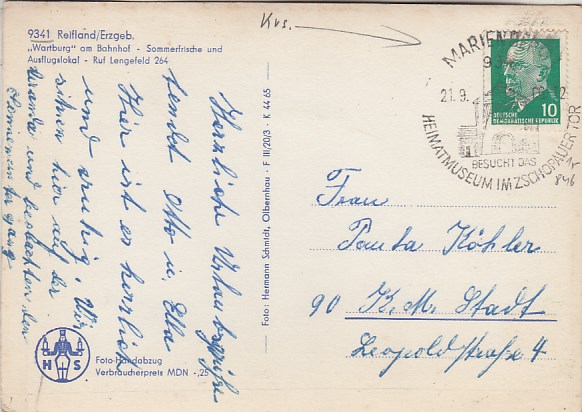 9341 Reifland/Erzgeb.
„Wartburg" am Bahnhof - Sommerfrische und
Ausflugslokal - Ruf Lengefeld 264
Herzliche Urlaubsgrüße
sendet Otto u. Ella
Hier ist es herrlich
und ruhig. Wir
sitzen hier auf der
Veranda und beobachten den
H S
Foto-Handabzug
Verbraucherpreis MDN -,25
Foto: Hermann Schmidt, Olbernhau · F III/20/3 · K 44 65
Krs.
MARIENB
21.9.
BESUCHT DAS
HEIMATMUSEUM IM ZSCHOPAUER TOR
10
DEUTSCHE
DEMOKRATISCHE REPUBLIK
846
Frau
Paula Köhler
90 K.M. Stadt
Leopoldstraße 4